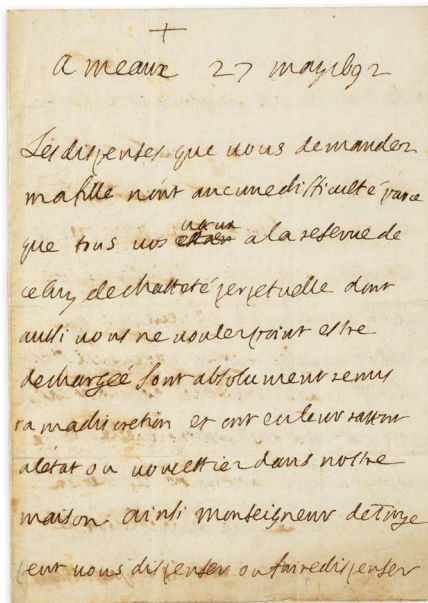 +
A meaux 27 may 1692
Les dispenses que vous demandez
ma fille n'ont aucune difficulté parce
que tous vos vœux a la reserve de
celuy de chasteté perpetuelle dont
aussi vous ne voulez point estre
dechargéé sont absolument remis
a ma discretion et ont eu leur rapport
a létat ou vous estiez dans nostre
maison. ainsi monseigneur de
peut vous dispenser ou faire dispenser